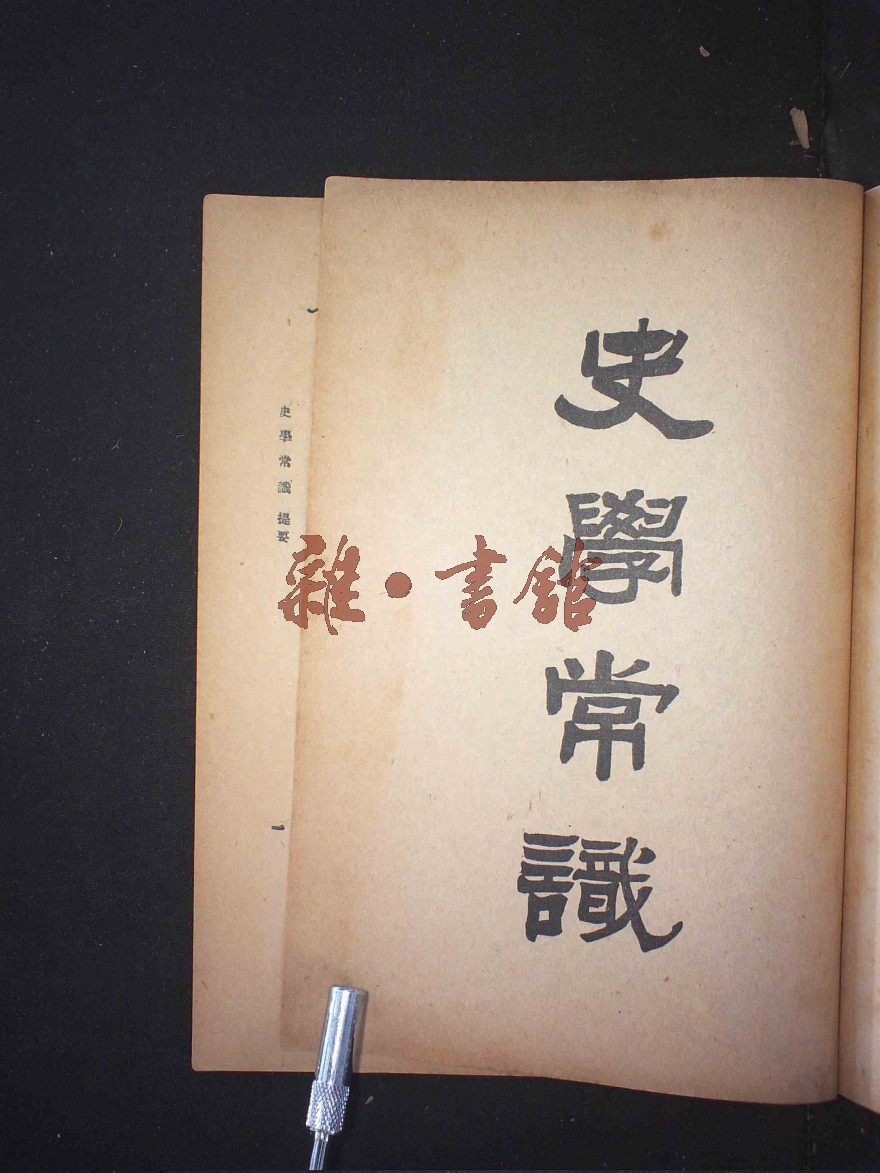 史學常識
雜·書館
史學常識 提要